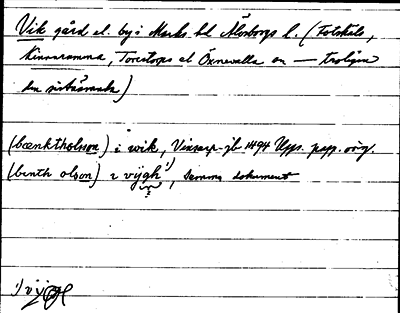 Vik gård el. by i Marks hd Älvsborgs l. (Fotskäls,
Kinnarumma, Torestorps el Öxnevalla sn — troligen
den sistnämnda)
(bænktholson) i wik, Vinsarp-jb 1494 Upps. papp. orig.
(benth olson) i vijgh 1), samma dokument
1) vijgh